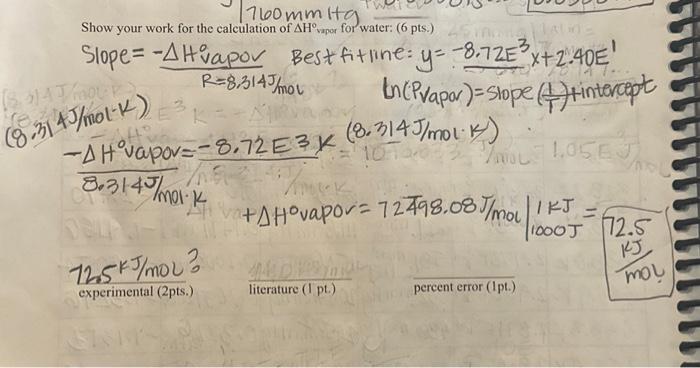 760mmHg
Show your work for the calculation of ΔH°vapor for water: (6 pts.)
Slope = -ΔH°vapor Best fit line: y = -8.72E³x+2.40E¹
R=8.314J/mol
ln(Pvapor)=slope(1/T)+intercept
(8.314J/mol·K) (8.314J/mol·K)
-ΔH°vapor = -8.72E3K
8.314J/mol·K
+ΔH°vapor = 72498.08J/mol | 1KJ = 72.5
1000J KJ
mol
72.5KJ/mol?
experimental (2pts.) literature (1 pt.) percent error (1pt.)